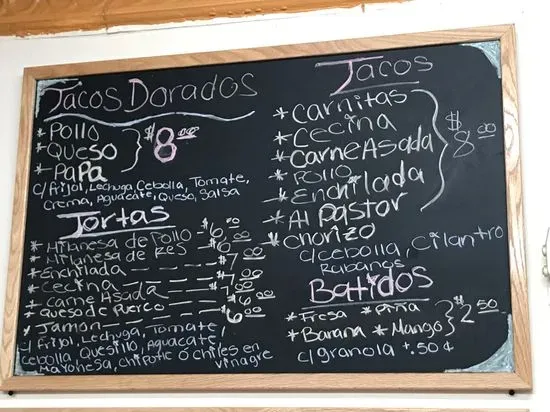 Tacos Dorados
* Pollo
* Queso
* Papa
$8.00
c/ Frijol, Lechuga, Cebolla, Tomate,
Crema, Aguacate, Queso, Salsa
Tortas
* Milanesa de Pollo - $6.00
* Milanesa de Res - 6.00
* Enchilada - - - - $7.00
* Cecina - - - -
* Carne Asada - - -
* queso de Puerco - - $6.00
* Jamon - - - $6.00
c/ Frijol, Lechuga, Tomate,
Cebolla, Quesillo, Aguacate,
Mayonesa, Chipotle o Chiles en
vinagre
Tacos
* Carnitas
* Cecina
* Carne Asada
* Pollo
* Enchilada
* Al Pastor
* Chorizo
$8.00
c/ cebolla, Cilantro
Rabanos
Batidos
* Fresa * Piña
* Banana * Mango
$2.50
c/ granola +.50¢